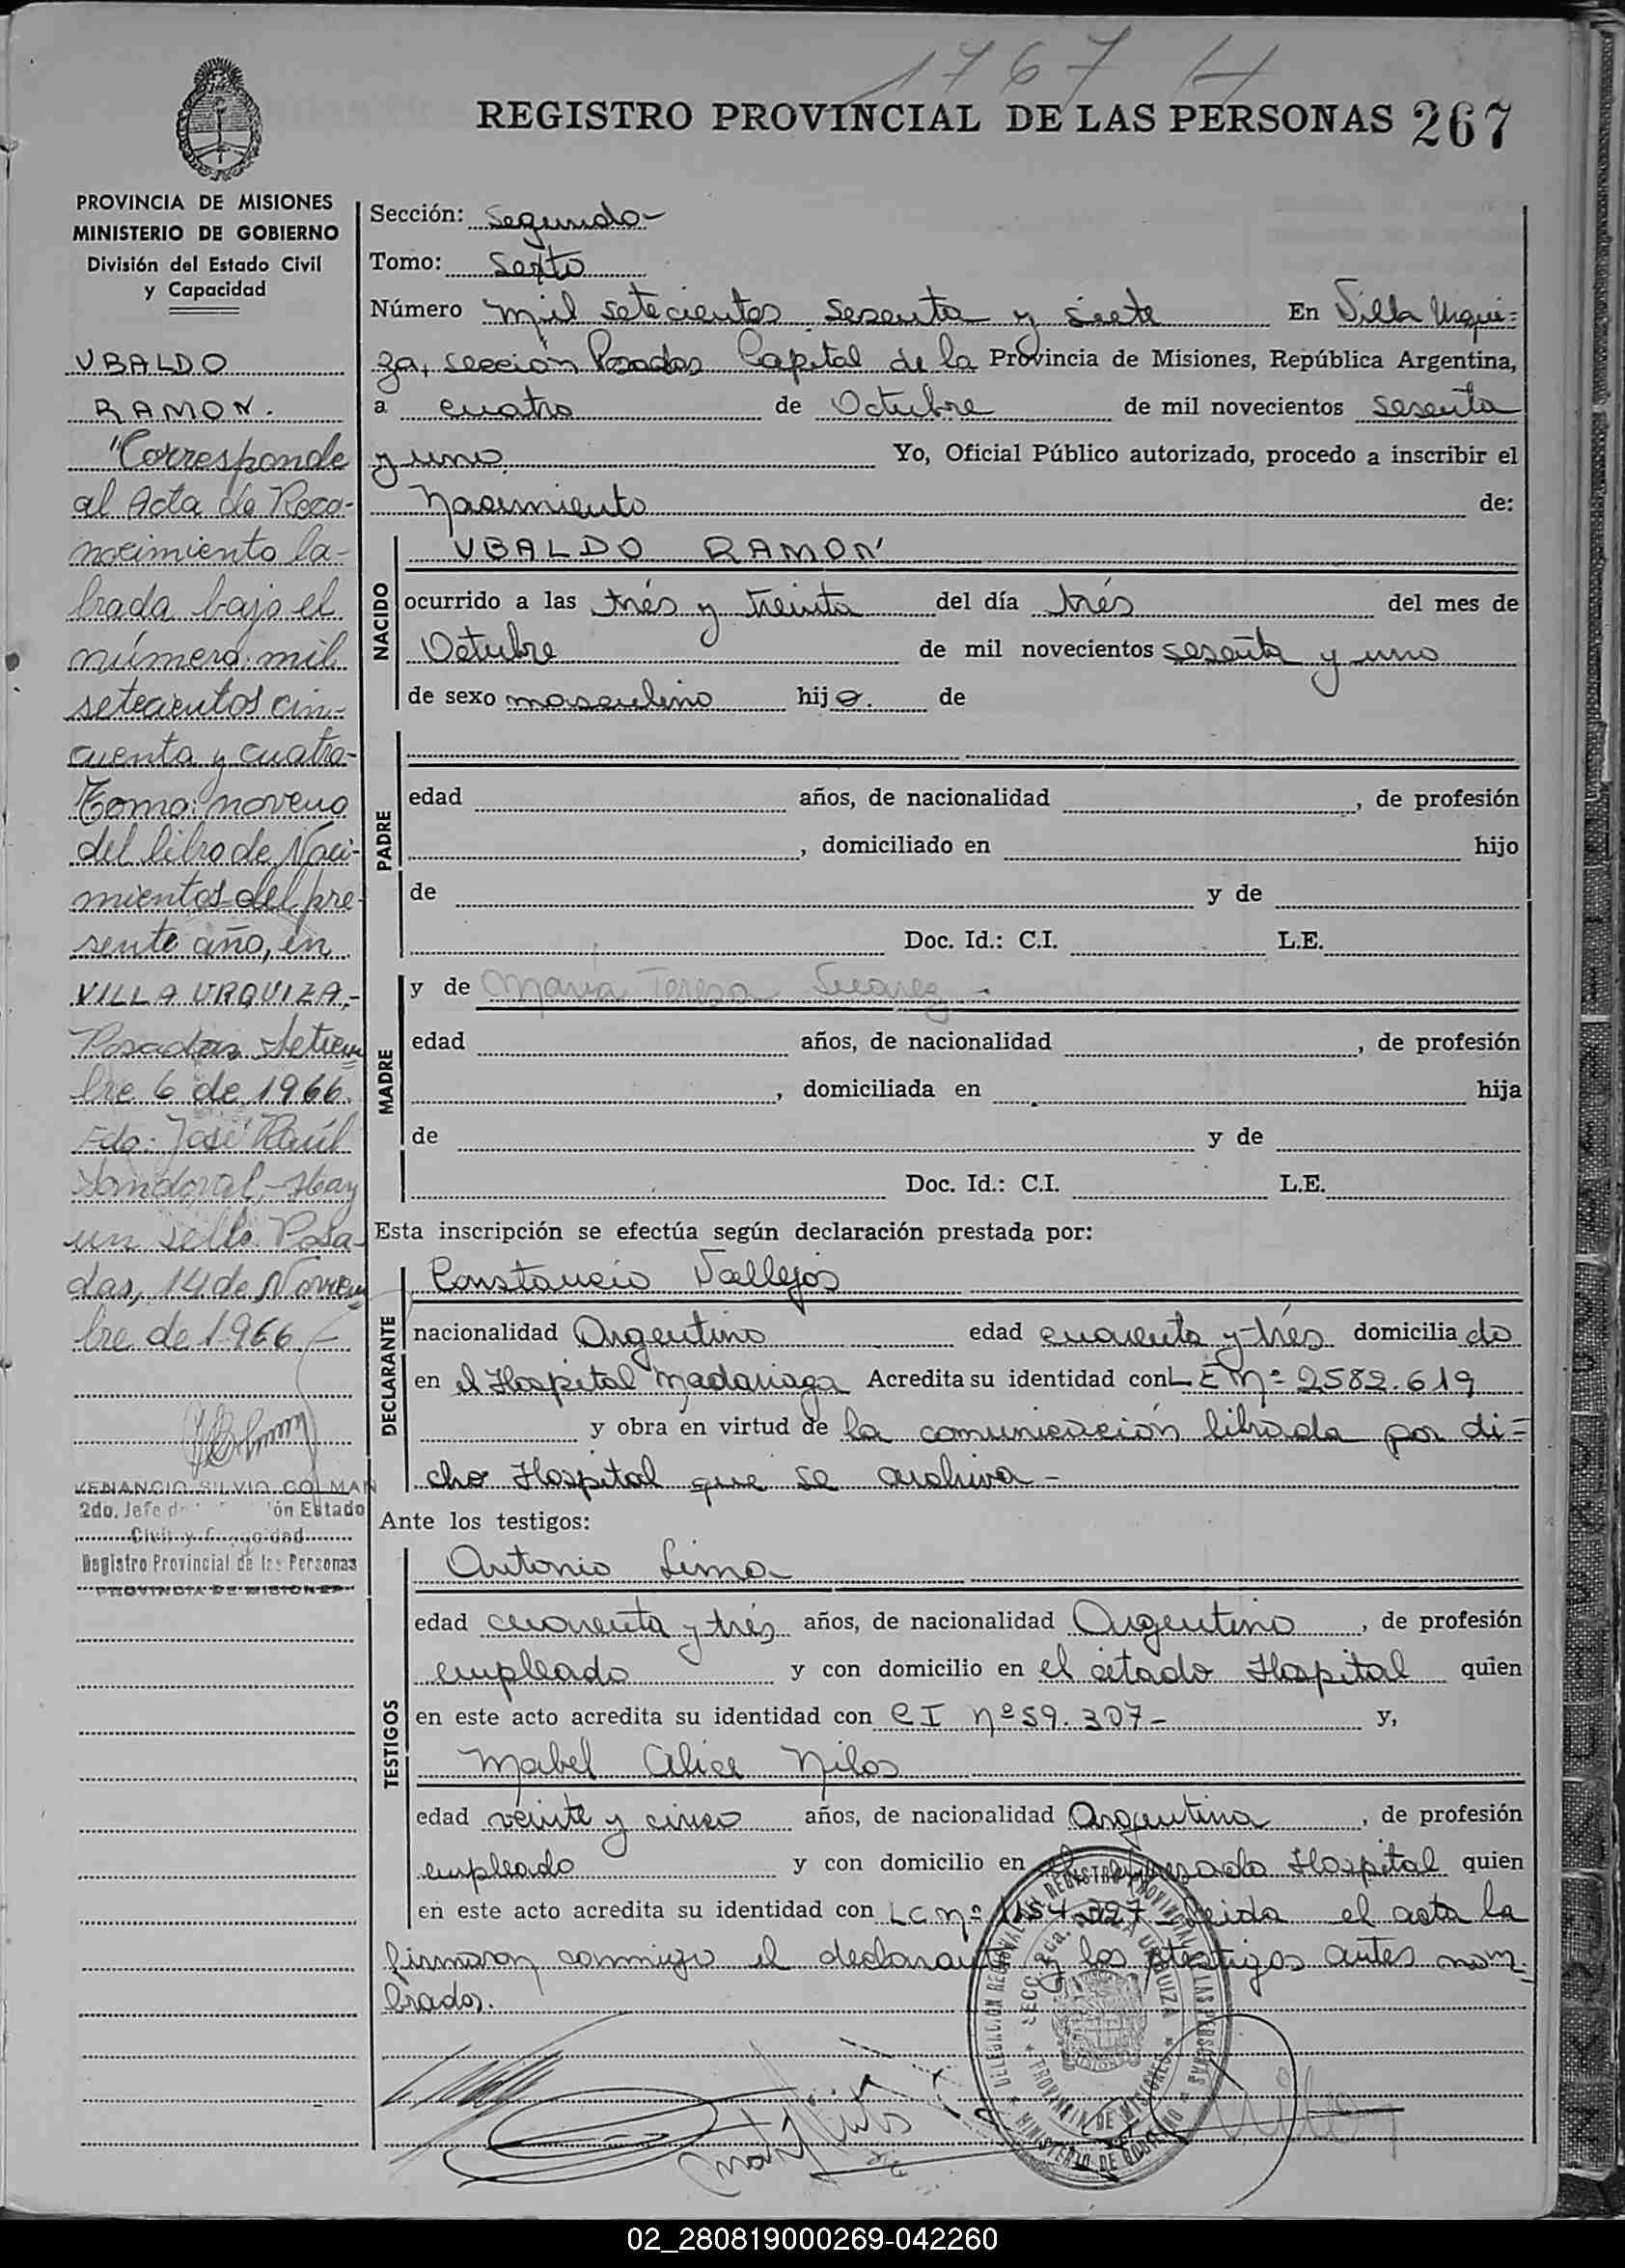 1767 H
REGISTRO PROVINCIAL DE LAS PERSONAS 267
PROVINCIA DE MISIONES
MINISTERIO DE GOBIERNO
División del Estado Civil
y Capacidad
UBALDO
RAMON.
"Corresponde
al Acta de Reco-
nocimiento la-
brada bajo el
número: mil
setecientos cin-
cuenta y cuatro-
Tomo: noveno
del libro de Naci-
mientos del pre-
sente año, en
VILLA URQUIZA,-
Posadas Setiem
bre 6 de 1966.
Fdo: José Raúl
Sandoval,- Hay
un sello Posa-
das, 14 de Noviem
bre de 1966.-
VENANCIO SILVIO COLMAN
2do. Jefe ón Estado
Civil y Capacidad
Registro Provincial de las Personas
PROVINCIA DE MISIONES
Sección: Segunda-
Tomo: Sexto
Número mil setecientos sesenta y siete En Villa Urqui=
za, sección Posadas Capital de la Provincia de Misiones, República Argentina,
a cuatro de Octubre de mil novecientos sesenta
y uno. Yo, Oficial Público autorizado, procedo a inscribir el
nacimiento de:
NACIDO
UBALDO RAMON
ocurrido a las trés y treinta del día trés del mes de
Octubre de mil novecientos sesenta y uno
de sexo masculino hijo. de
PADRE
edad años, de nacionalidad , de profesión
, domiciliado en hijo
de y de
Doc. Id.: C.I. L.E.
MADRE
y de Maria Teresa Suarez -
edad años, de nacionalidad , de profesión
, domiciliada en hija
de y de
Doc. Id.: C.I. L.E.
Esta inscripción se efectúa según declaración prestada por:
DECLARANTE
Constancio Vallejos
nacionalidad Argentino edad cuarenta y trés domiciliado
en el Hospital Madariaga Acredita su identidad con L E Nº 2582.619
y obra en virtud de la comunicación librada por di=
cho Hospital que se archiva-
Ante los testigos:
TESTIGOS
Antonio Lima
edad cuarenta y trés años, de nacionalidad Argentino , de profesión
empleado y con domicilio en el citado Hospital quien
en este acto acredita su identidad con C I nº 59.307- y,
Mabel Alice Nilos
edad veinte y cinco años, de nacionalidad Argentina , de profesión
empleado y con domicilio en el Hospital quien
en este acto acredita su identidad con L C Nº Leida el acta la
firmaron conmigo el declarante y los testigos antes nom-
brados.
DELEGACION REGIONAL REGISTRO PROVINCIAL DE LAS PERSONAS
SECC. 2da. VILLA URQUIZA
PROVINCIA DE MISIONES
MINISTERIO DE GOBIERNO
02_280819000269-042260